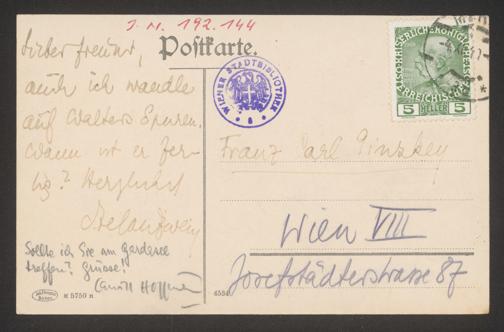 J. N. 192.144
Postkarte.
Lieber Freund,
auch ich wandle
auf Walters Spuren.
Wann ist er fer-
tig? Herzlichst
Stefan Zweig
Sollte ich Sie am Gardasee
treffen? Grüsse!
Camill Hoffmann
K 5750 n
WIENER STADTBIBLIOTHEK
5
HELLER
5
Franz Karl Ginzkey
Wien VIII
Josefstädterstrasse 87